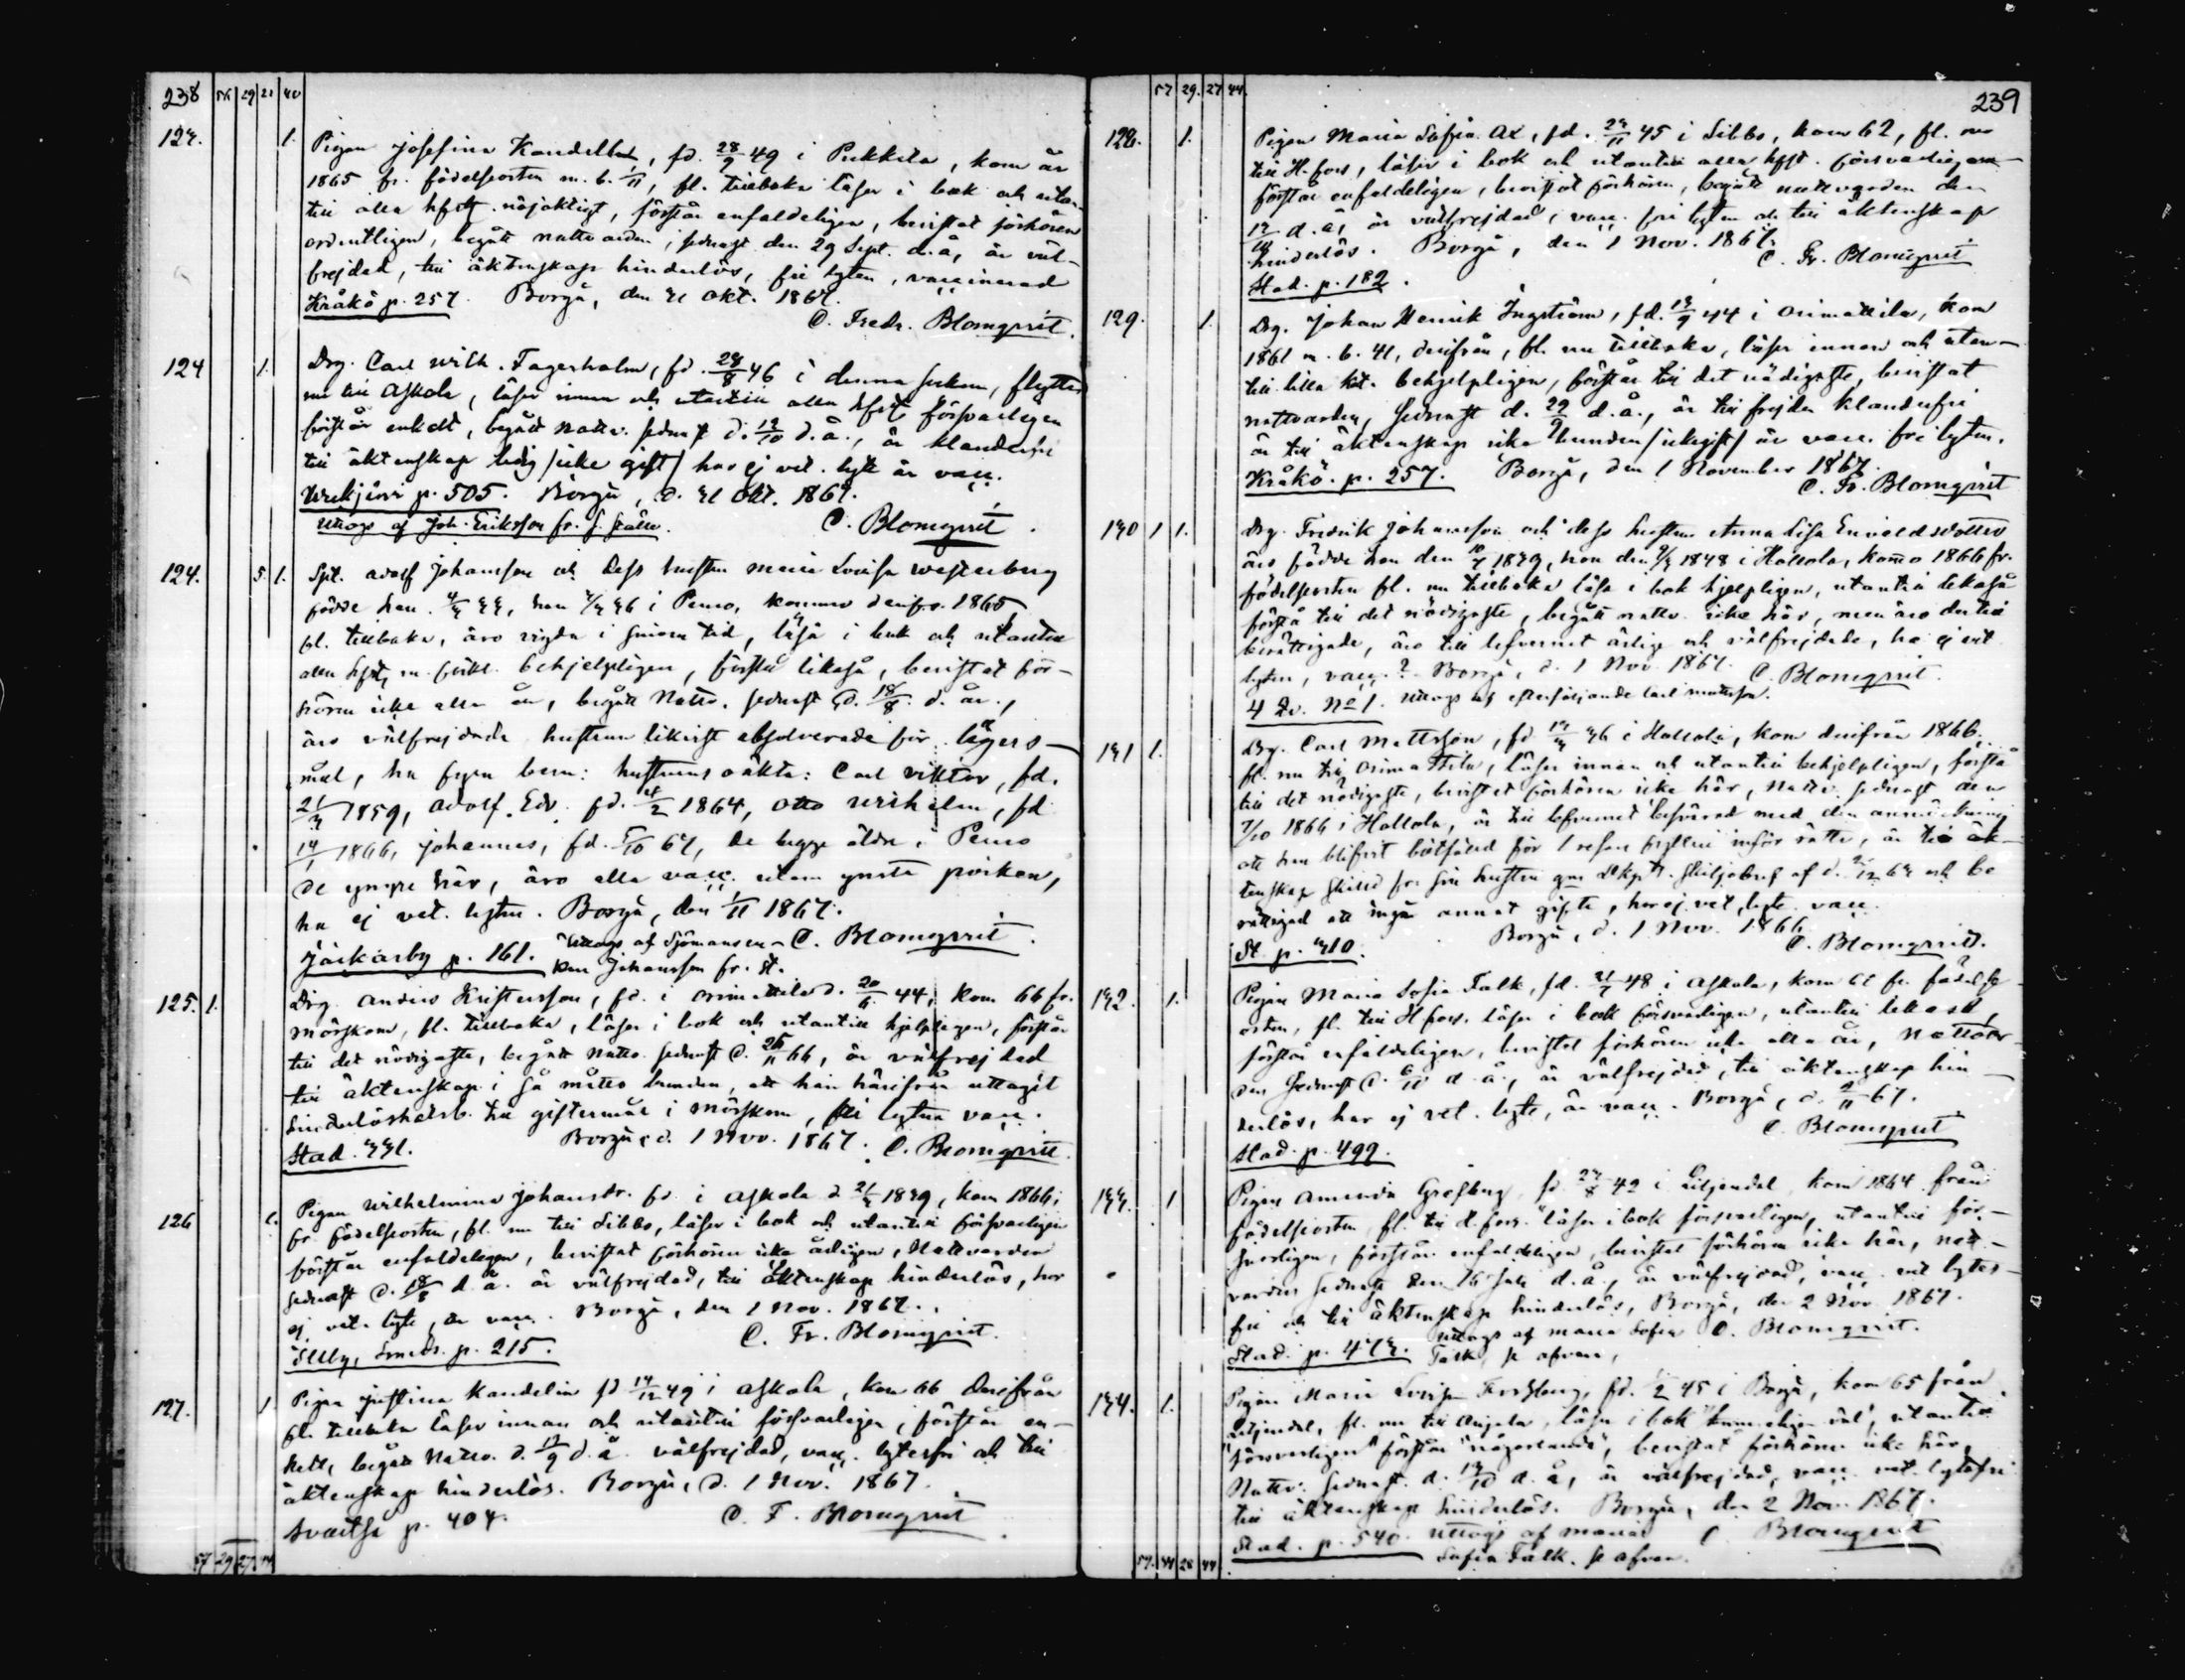 238 56 29 21 40
122. 1. Pigan Josefina Kandelin, fd. 28/9 49 i Pukkila, kom år
1865 fr. födelseorten m. b. 1/11, fl. tillbaka läser i bok och utan-
till alla hfst. nöjaktigt, förstår enfaldeligen, bevistat förhören
ordentligen, begått nattvarden, sednast den 29 Sept. d. å, är väl-
frejdad, till äktenskap hinderlös, fri lyten, vaccinerad
Kråkö p. 257 Borgå, den 31 Okt. 1867.
C. Fredr. Blomqvist.
124 1. Drg. Carl Wilh. Fagerholm, fd. 28/8 46 i denna socken, flyttar
nu till Askola, läser innan och utantill alla hfst försvarligen
förstår enkelt, begått Nattv. sednast d. 13/10 d. å., är klanderfri
till äktenskap ledig /icke gift/ har ej vet. lyte är vacc.
Wekjärvi p. 505. Borgå, d. 31 Okt. 1867.
Uttogs af Joh. Eriksson fr. C. Blomqvist.
124. 5. 1. Spt. Adolf Johansson och dess hustru Maria Lovisa Westerberg
födde han 4/3 33, hon 36 i Perno, kommo derifr. 1865,
fl. tillbaka, äro vigda i sinom tid, läsa i bok och utantill
alla hfst, m. förkl. behjelpligen, förstå likaså, bevistat för-
hören icke alla år, begått Nattv. sednast d. 18/8 d. år.,
äro välfrejdade hustrun likvist absolverade för lägers-
mål, ha fyra barn: hustruns oäkta: Carl Viktor, fd.
21/3 1859, Adolf Edv. fd. 2 1864, Otto Wilhelm, fd
14/1 1866, Johannes, fd. 5/10 67, de begge äldre i Perno
de yngre här, äro alla vacc. utom ynsta pojken,
ha ej vet. lyten. Borgå, den 1/11 1867.
Jackarby p. 161. Uttogs af Sjömansen- C. Blomqvist.
kan Johansson fr. St.
125. 1. Drg. Anders Kristersson, fd. i Orimattila d. 20/6 44, kom 66 fr.
Mörskom, fl. tillbaka, läser i bok och utantill hjelpligen, förstår
till det nödigaste, begått nattv. sednast d. 25/11 66, är välfrejdad
till äktenskap i så måtto bunden, att han härifrån uttagit
hinderlöshetsb. till giftermål i Mörskom, fri lyten vacc.
Stad. 331. Borgå, d. 1 Nov. 1867. C. Blomqvist
126 1. Pigan Wilhelmina Johansdr. fd. i Askola d 21/3 1839, kom 1866
fr. födelseorten, fl. nu till Sibbo, läser i bok och utantill försvarligen
förstår enfaldeligen, bevistat förhören icke årligen, Nattvarden
sednast d. 18/8 d. å. är välfrejdad, till äktenskap hinderlös, har
ej vet. lyte, är vacc. Borgå, den 1 Nov. 1867.
Illby, Smeds. p. 215. C. Fr. Blomqvist.
127. 1 Pigan Justina Kandelin fd 14/12 49 i Askola, kom 66 derifrån
fl. tillbaka läser innan och utantill försvarligen, förstår en-
kelt, begått Nattv. d. 13/9 d. å. välfrejdad, vacc. lytesfri och till
äktenskap hinderlös. Borgå, d. 1 Nov. 1867.
Svartså p. 404. C. F. Blomqvist
57 29 27 44
57 29. 27 44. 239
128. 1. Pigan Maria Sofia Ax, fd. 23/11 45 i Sibbo, kom 62, fl. nu
till H.fors, läser i bok och utantill alla hfst. försvarligen
förstår enfaldeligen, bevistat förhören, begått nattvarden den
13/10 d. å, är välfrejdad, vacc. fri lyten och till äktenskap
hinderlös. Borgå, den 1 Nov. 1867.
C. Fr. Blomqvist
Stad. p. 182.
129. 1. Drg. Johan Henrik Ingström, fd. 13/9 44 i Orimattila, kom
1861 m. b. 41, derifrån, fl. nu tillbaka, läser innan och utan-
till lilla kat. behjelpligen, förstår till det nödigaste, bevistat
nattvarden, sednast d. 29/9 d. å., är till frejden klanderfri
är till äktenskap icke bunden /icke gift/ är vacc. fri lyten.
Kråkö. p. 257. Borgå, den 1 November 1867.
C. Fr. Blomqvist
130 1 1. Drg. Fredrik Johansson och dess hustru Anna Lisa Envaldsdotter
äro födde han den 10/7 1839, hon den 9/3 1848 i Hollola, kommo 1866 fr.
födelseorten fl. nu tillbaka läsa i bok hjelpligen, utantill likaså
förstå till det nödigaste, begått nattv. icke här, men äro dertill
berättigade, äro till lefvernet ärlige och välfrejdade, ha ej vet
lyten, vacc.? Borgå, d. 1 Nov 1867. C. Blomqvist.
4 Qv. No 1. Uttogs af efterföljande Carl Mattsson.
131 1. Drg. Carl Mattsson, fd 36 i Hollola, kom derifrån 1866.
fl. nu till Orimattila, läser innan och utantill behjelpligen, förstå
till det nödigaste, bevistat förhören icke här, Nattv. sednast den
7/10 1866 i Hollola, är till lefvernet besvärad med den anmärkning
att han blifvit bötfäld för 1 resan fylleri inför rätta, är till äk-
tenskap skiled fr. sin hustru gm Dkpt. skiljobref af d. 12 63 och be
rättigad att ingå annat gifte, har ej vet. lyte vacc.
Borgå, d. 1 Nov. 1866
St. p. 310. C. Blomqvist.
132. 1. Pigan Maria Sofia Falk, fd. 21/7 48 i Askola, kom 62 fr. födelse-
orten, fl. till Hfors. läser i bok försvarligen, utantill likaså
förstår enfaldeligen, bevistat förhören icke alla år, Nattvar-
den sednast d. 6/10 d. å., är välfrejdad, till äktenskap hin-
derlös, har ej vet. lyte, är vacc. Borgå, d. 2/11 67.
C. Blomqvist
Stad. p. 499.
133. 1 Pigan Amanda Grefberg, fd 23/8 42 i Liljendal, kom 1864 från
födelseorten, fl. till H.fors. läser i bok försvarligen, utantill för-
svarligen, förstår enfaldeligen, bevistat förhören icke här, natt-
varden sednast den 16 Juli d. å., är välfrejdad, vacc. vet lytes-
fri och till äktenskap hinderlös, Borgå, den 2 Nov. 1867.
Stad. p. 473. Uttogs af Maria Sofia C. Blomqvist.
Falk, se ofvan,
134. 1. Pigan Maria Lovisa Forsberg, fd. 1/2 45 i Borgå, kom 65 från
Liljendal, fl. nu till Anjala, läser i bok "kunneligen väl", utantill
"försvarligen" förstår "någorlunda", bevistat förhören icke här,
Nattv. sednast d. 13/10 d. å, är välfrejdad, vacc. vet. lytesfri
till äktenskap hinderlös. Borgå, den 2 Nov. 1867.
Stad. p. 540. Uttogs af Maria C. Blomqvist
Sofia Falk. se ofvan.
57. 34 28 44